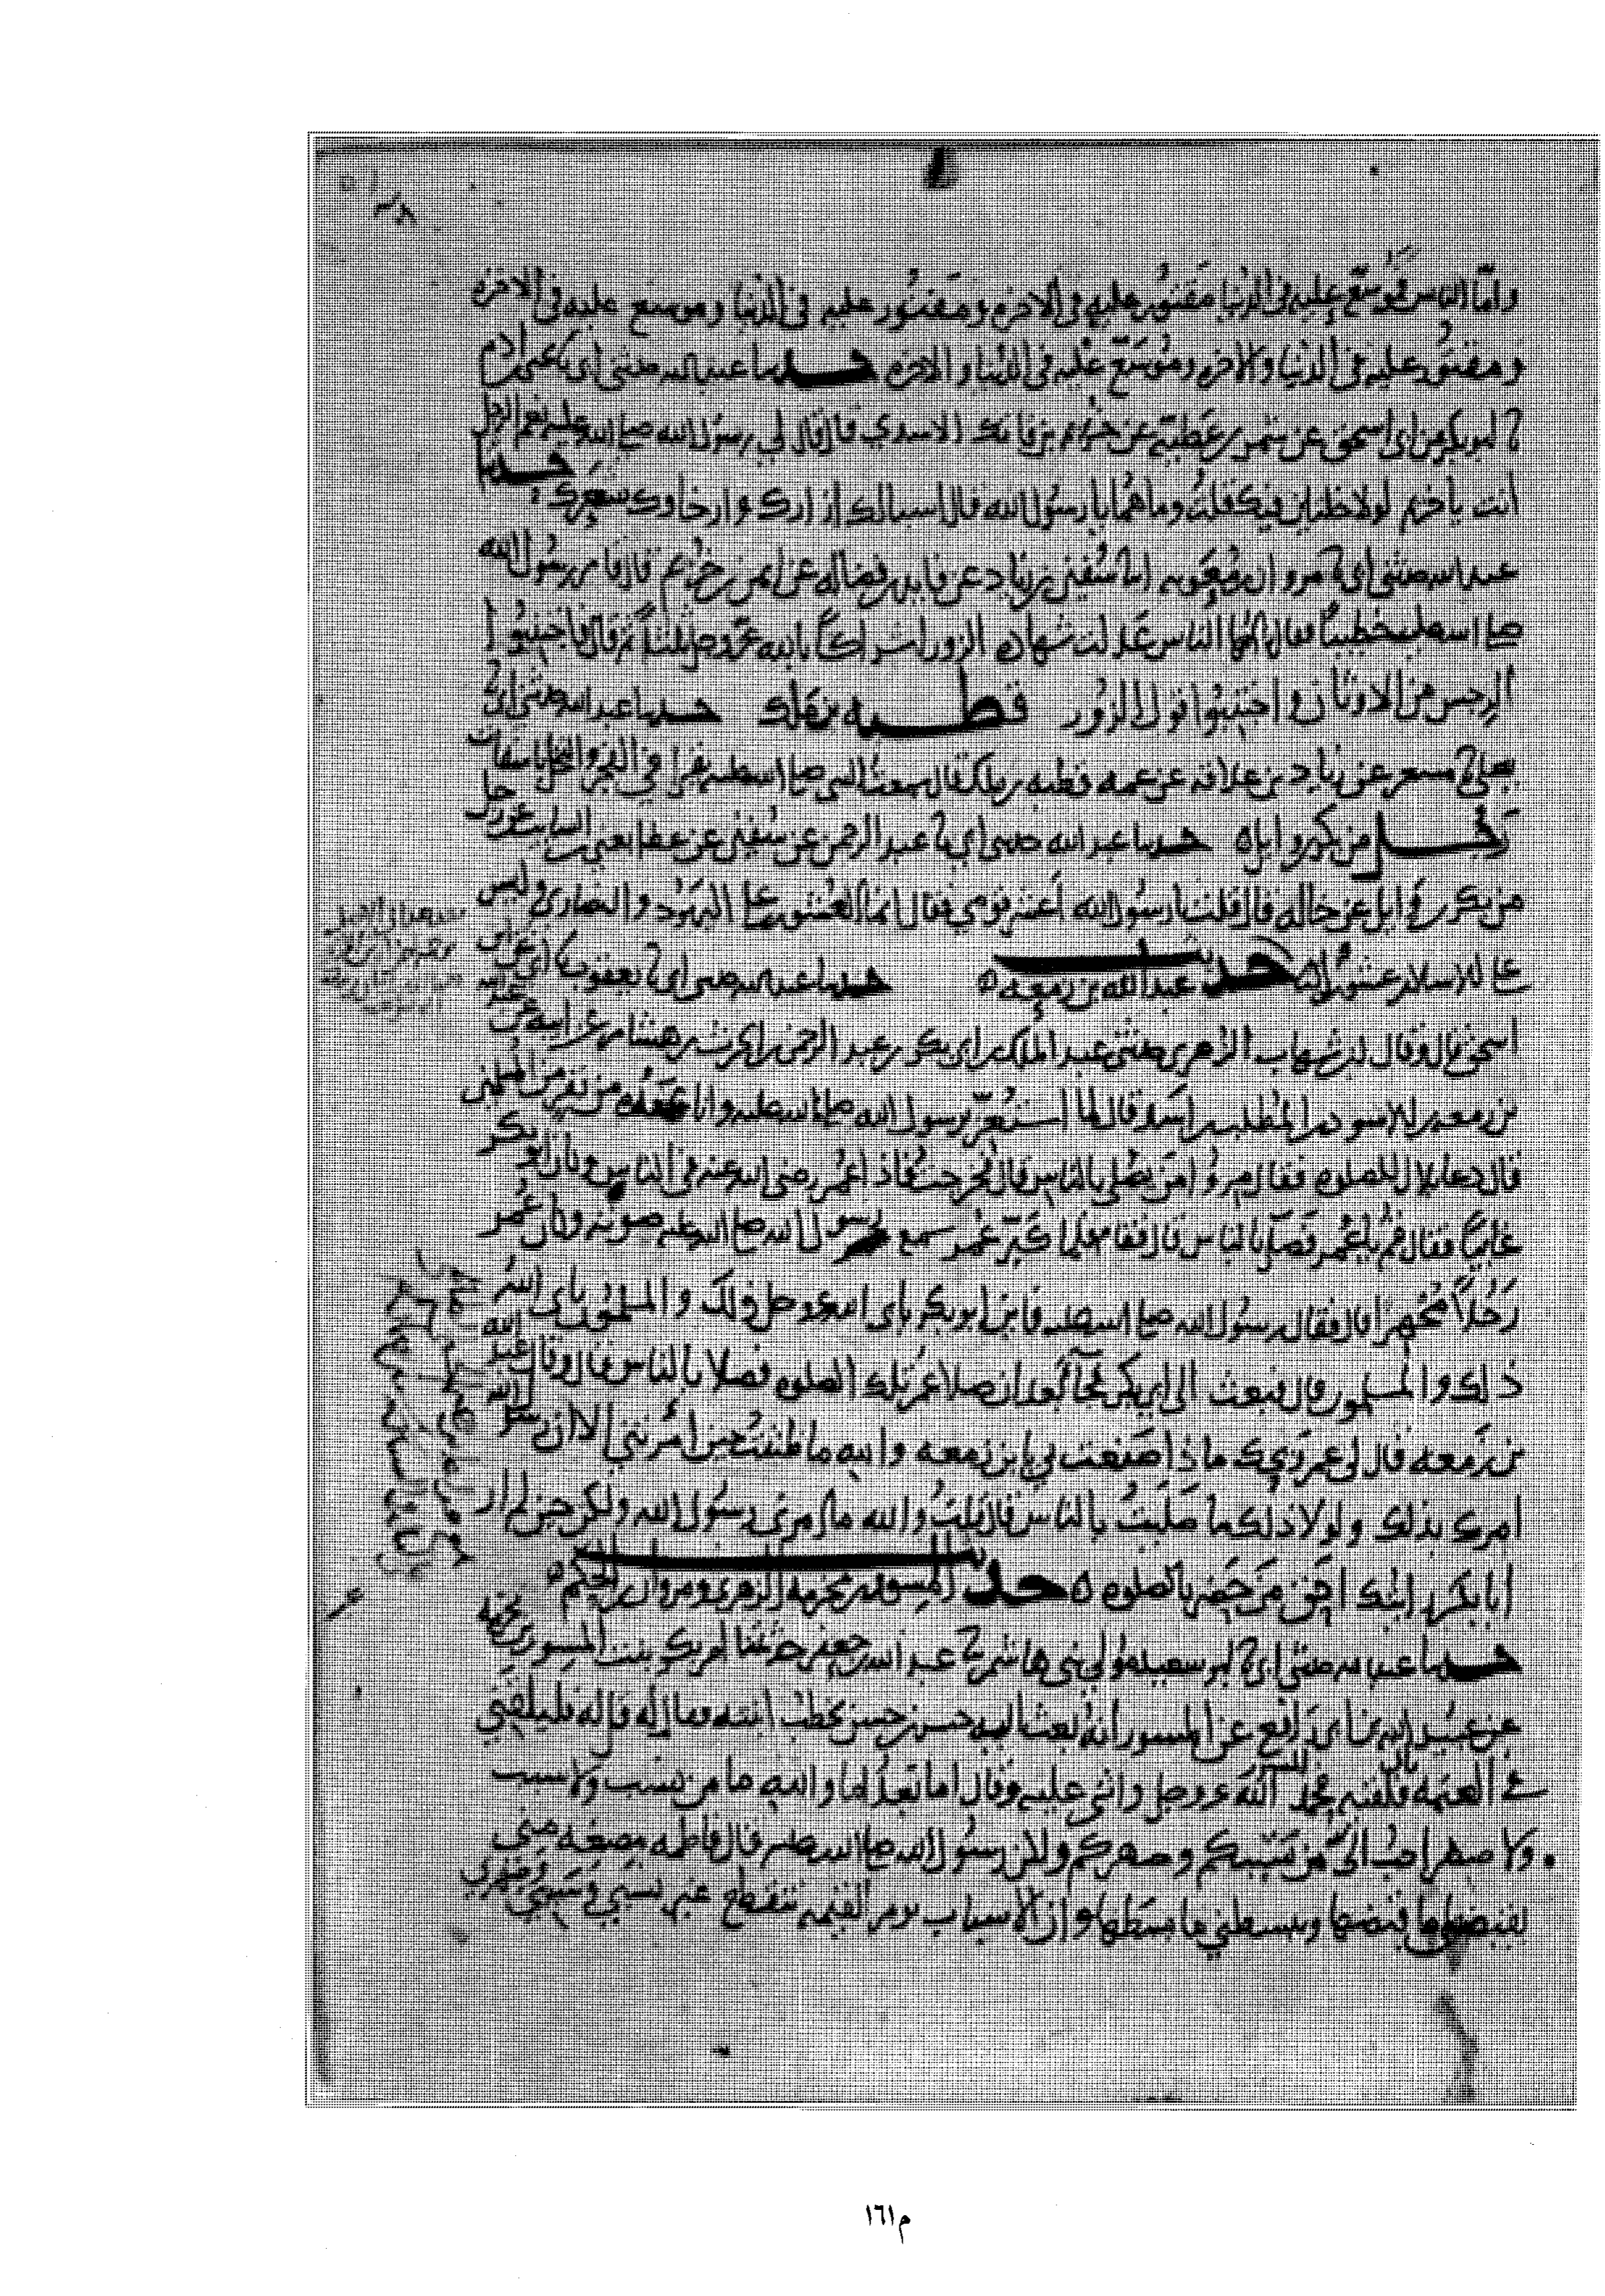 واما الناس فموسع عليه في الدنيا مقتور عليه في الاخره ومقتور عليه في الدنيا وموسع عليه في الاخره
ومقتور عليه في الدنيا والاخره وموسع عليه في الدنيا والاخره حدثنا عبد الله حدثني ابي يحيى بن ادم
ابو بكر عن ابي اسحق عن شمر بن عطيه عن خريم بن فاتك الاسدي قال قال لي رسول الله صلى الله عليه نعم الرجل
انت يا خريم لولا خلتين فيك قلت وما هما يا رسول الله قال اسبالك ازارك وارخاوك شعرك حدثنا
عبد الله حدثني ابي مروان بن معويه سفين بن زياد عن فاتك بن فضاله عن ايمن بن خريم قال قام رسول الله
صلى الله عليه خطيبا فقال ايها الناس عدلت شهاده الزور اشراكا بالله عز وجل ثلثا ثم قال فاجتنبوا
الرجس من الاوثان واجتنبوا قول الزور قطبه بن ملك حدثنا عبد الله حدثني ابي
يعلى مسعر عن زياد بن علاقه عن عمه قطبه بن ملك قال سمعت النبي صلى الله عليه يقرا في الفجر والنخل باسقات
رجل من بكر بن وايل حدثنا عبد الله حدثني ابي عبد الرحمن عن سفين عن عطا يعني ابن السايب عن رجل
من بكر بن وايل عن خاله قال قلت يا رسول الله اعشر قومي فقال انما العشور على اليهود والنصارى وليس
على الاسلام عشور حديث عبد الله بن زمعه حدثنا عبد الله حدثني ابي يعقوب ابي عن ابن
اسحق قال وقال ابن شهاب الزهري حدثني عبد الملك بن ابي بكر بن عبد الرحمن بن الحرث بن هشام عن ابيه عن عبد الله
بن زمعه بن الاسود بن المطلب بن اسد قال لما استعز برسول الله صلى الله عليه وانا عنده من نفر من المسلمين
قال دعا بلال للصلوه فقال مروا من يصلي بالناس قال فخرجت فاذا عمر رضي الله عنه في الناس وكان ابو بكر
غايبا فقال قم يا عمر فصل بالناس قال فقام فلما كبر عمر سمع رسول الله صلى الله عليه صوته وكان عمر
رجلا مجهرا قال فقال رسول الله صلى الله عليه فاين ابو بكر يابى الله عز وجل ذلك والمسلمون يابى الله
ذلك والمسلمون قال فبعث الى ابي بكر فجآ بعد ان صلا عمر تلك الصلوه فصلا بالناس قال وقال عبد الله
بن زمعه قال لي عمر ويحك ماذا صنعت بي يا بن زمعه والله ما ظننت حين امرتني الا ان رسول الله
امرك بذلك ولولا ذلك ما صليت بالناس قال قلت والله ما امرني رسول الله ولكن حين لم ار
ابا بكر رايتك احق من حضر بالصلوه حديث المسور بن مخرمه الزهري ومروان بن الحكم
حدثنا عبد الله حدثني ابي ابو سعيد مولى بني هاشم عبد الله بن جعفر حدثتنا ام بكر بنت المسور بن مخرمه
عن عبيد الله بن ابي رافع عن المسور انه بعث اليه حسن بن حسن يخطب ابنته فقال له قل له فليلقني
في العتمه قال فلقيه فحمد المسور الله عز وجل واثنى عليه وقال اما بعد والله ما من نسب ولا سبب
ولا صهر احب الي من سببكم وصهركم ولكن رسول الله صلى الله عليه قال فاطمه مضغه مني
يقبضني ما قبضها ويبسطني ما بسطها وان الاسباب يوم القيمه تنقطع غير نسبي وسببي وصهري
م١٦١